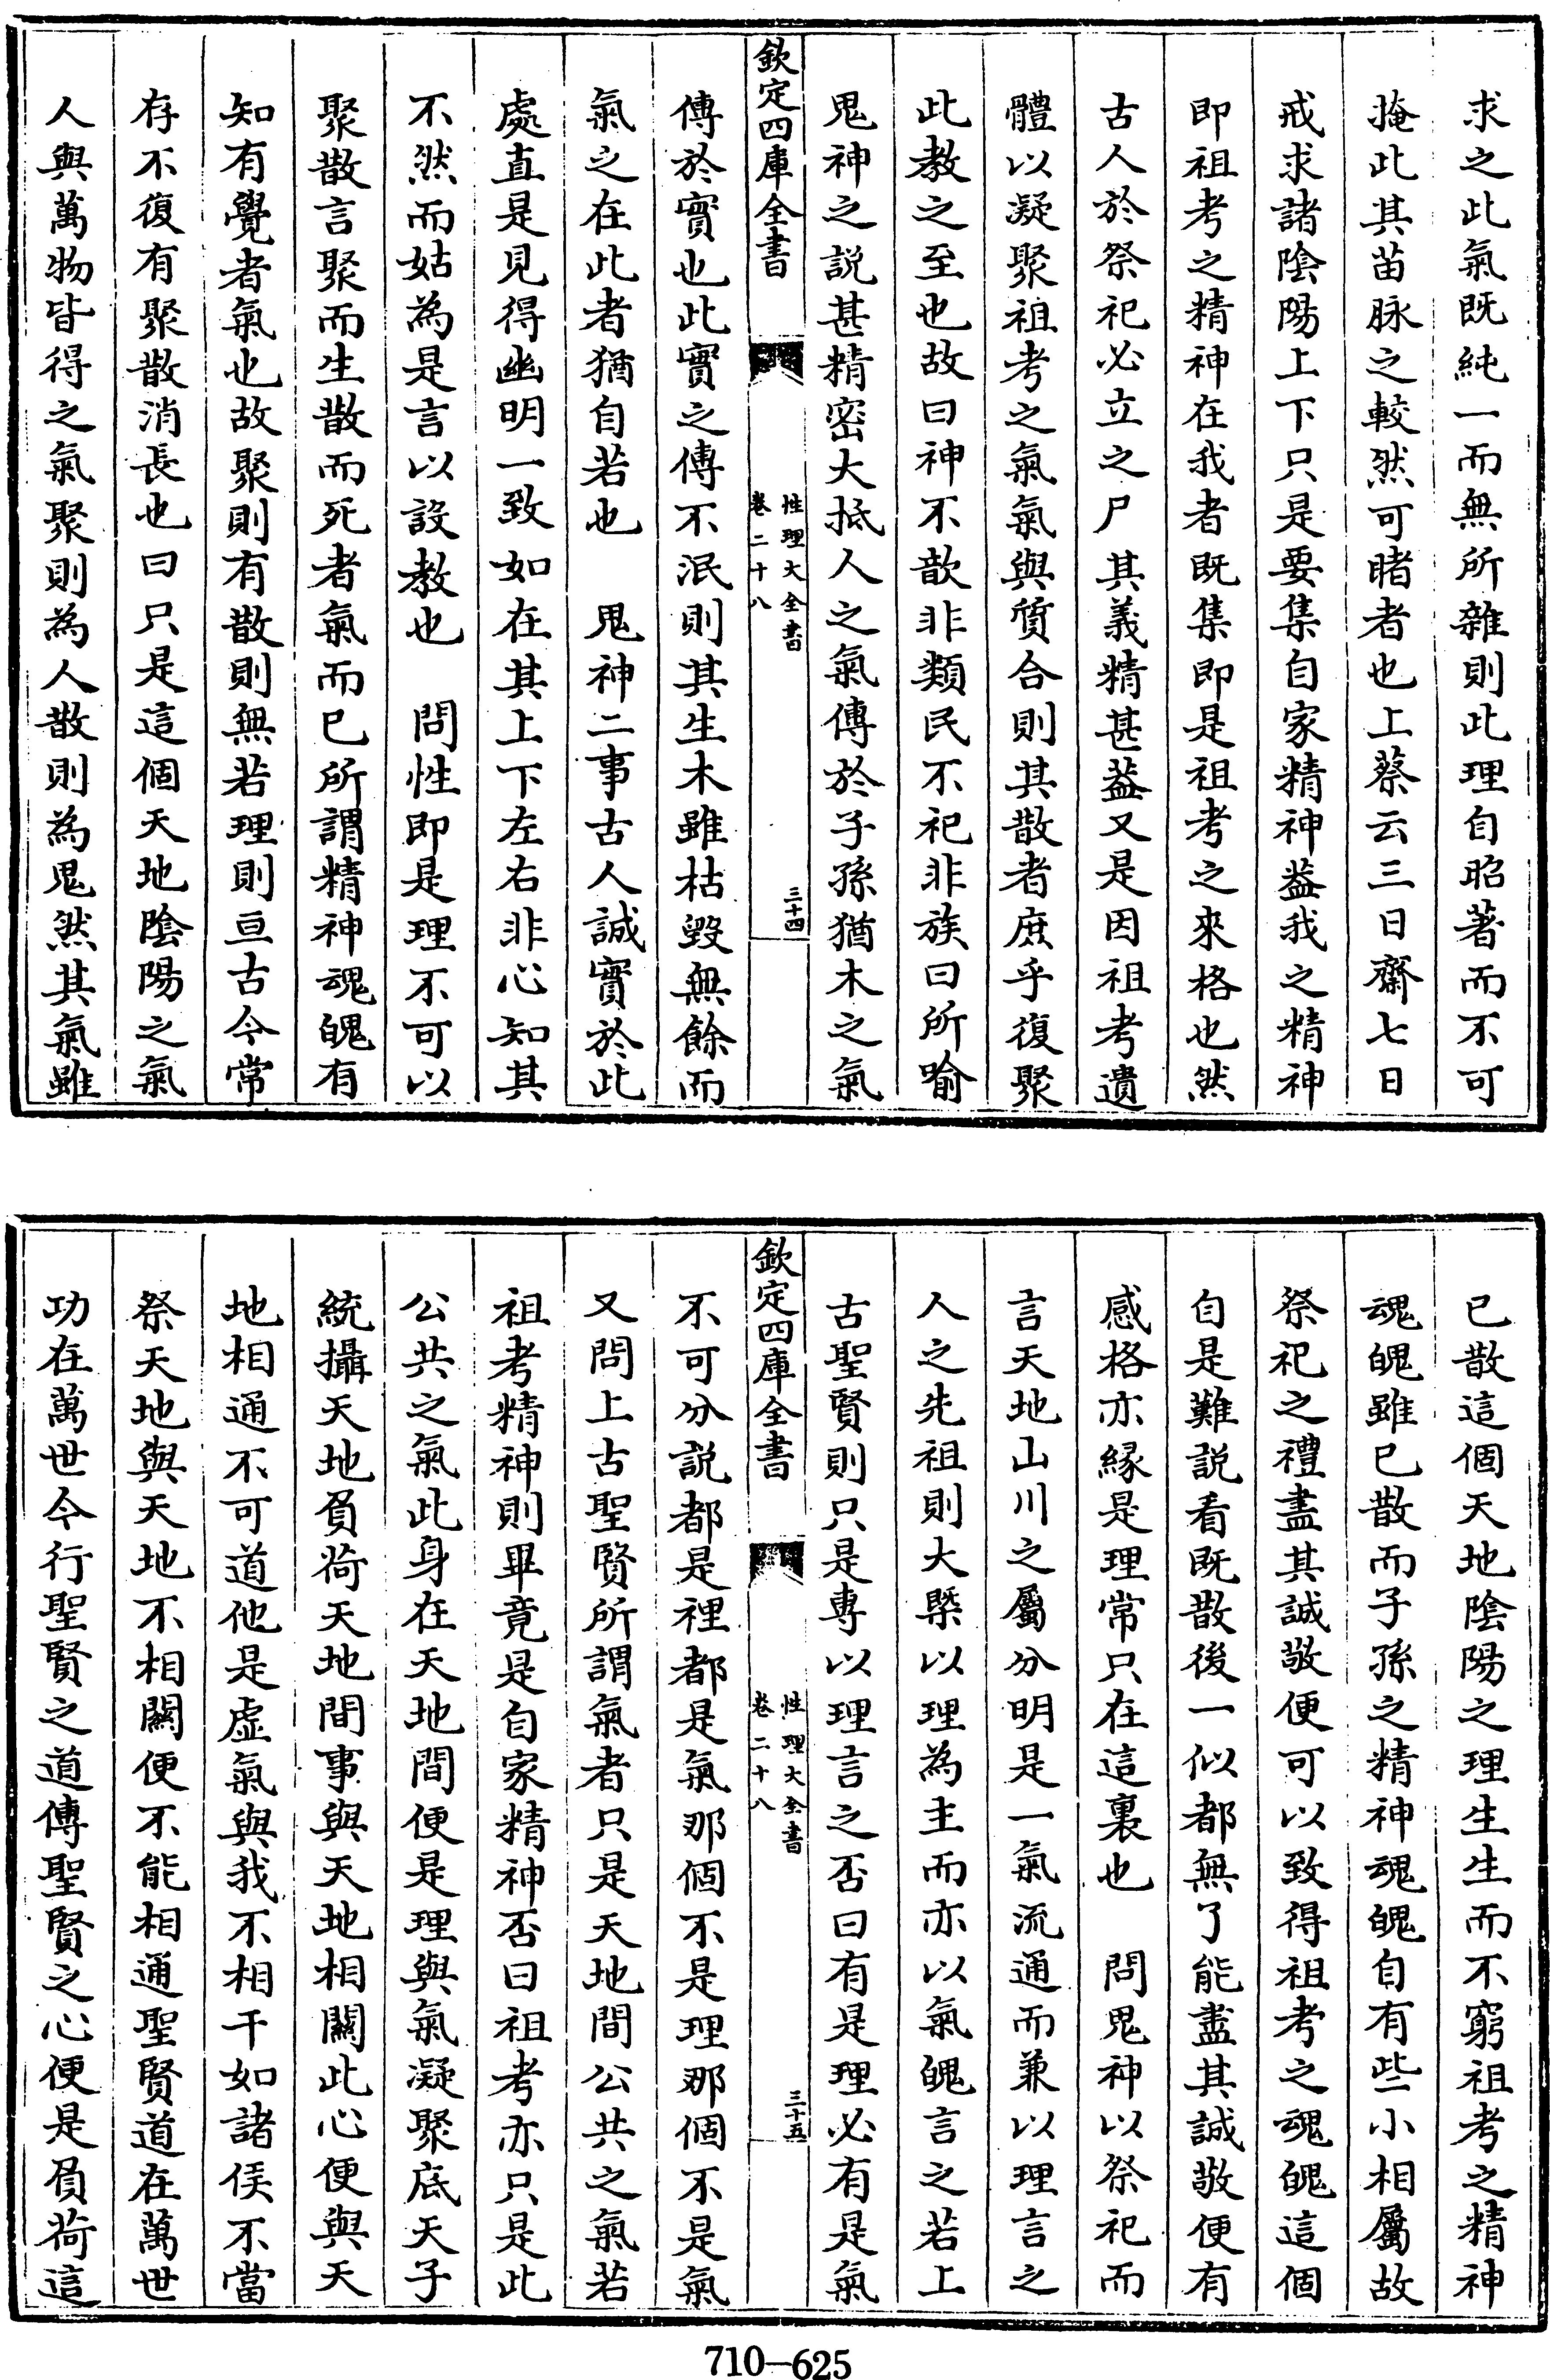 求之此氣既純一而無所雜則此理自昭著而不可
掩此其苗脉之較然可睹者也上蔡云三日齋七日
戒求諸陰陽上下只是要集自家精神葢我之精神
即祖考之精神在我者既集即是祖考之來格也然
古人於祭祀必立之尸其義精甚葢又是因祖考遺
體以凝聚祖考之氣氣與質合則其散者庶乎復聚
此教之至也故曰神不歆非類民不祀非族曰所喻
鬼神之説甚精密大抵人之氣傳於子孫猶木之氣
欽定四庫全書
性理大全書
卷二十八
三十四
傳於實也此實之傳不泯則其生木雖枯毀無餘而
氣之在此者猶自若也　鬼神二事古人誠實於此
處直是見得幽明一致如在其上下左右非心知其
不然而姑為是言以設教也　問性即是理不可以
聚散言聚而生散而死者氣而已所謂精神魂魄有
知有覺者氣也故聚則有散則無若理則亘古今常
存不復有聚散消長也曰只是這個天地陰陽之氣
人與萬物皆得之氣聚則為人散則為鬼然其氣雖
已散這個天地陰陽之理生生而不窮祖考之精神
魂魄雖已散而子孫之精神魂魄自有些小相屬故
祭祀之禮盡其誠敬便可以致得祖考之魂魄這個
自是難説看既散後一似都無了能盡其誠敬便有
感格亦緣是理常只在這裏也　問鬼神以祭祀而
言天地山川之屬分明是一氣流通而兼以理言之
人之先祖則大槩以理為主而亦以氣魄言之若上
古聖賢則只是專以理言之否曰有是理必有是氣
欽定四庫全書
性理大全書
卷二十八
三十五
不可分説都是裡都是氣那個不是理那個不是氣
又問上古聖賢所謂氣者只是天地間公共之氣若
祖考精神則畢竟是自家精神否曰祖考亦只是此
公共之氣此身在天地間便是理與氣凝聚底天子
統攝天地負荷天地間事與天地相關此心便與天
地相通不可道他是虚氣與我不相干如諸侯不當
祭天地與天地不相關便不能相通聖賢道在萬世
功在萬世今行聖賢之道傳聖賢之心便是負荷這
710—625